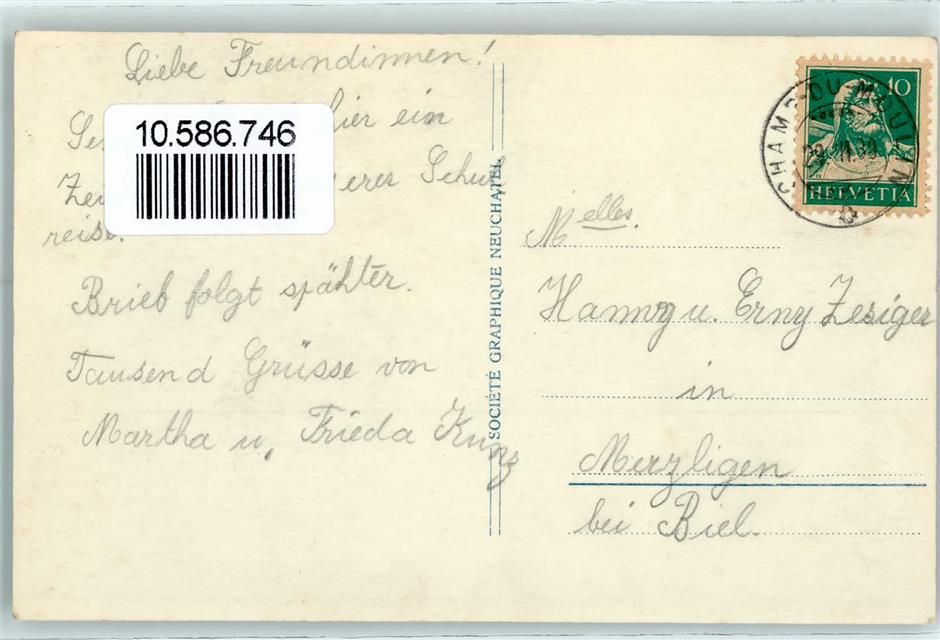 Liebe Freundinnen!
hier ein
10.586.746
Schul
reise.
Brieb folgt spähter.
Tausend Grüsse von
Martha u. Frieda Kunz
SOCIÉTÉ GRAPHIQUE NEUCHATEL
10
HELVETIA
CHAMP-DU-MOULIN
Melles.
Hanny u. Erny Zesiger
in
Merzligen
bei Biel.